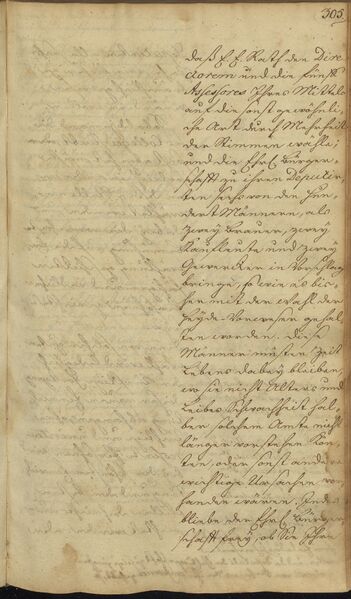 305.
daß E. E. Rath den Dire
ctorem und die fünf
Assessores Ihres Mittels
auf die sonst gewöhnli-
che Art durch Mehrheit
der Stimmen wähle;
und die Ehrl. Bürger-
schafft zu ihren Deputir-
ten sechs von den Hun-
dert Männern, als
zwey Brauer, zwey
Kaufleute und zwey
Gewercken in Vorschlag
bringe, so wie es bis-
her mit der Wahl der
Heyde-Vorweser gehal-
ten worden. Diese
Männer müsten Zeit
Lebens dabey bleiben,
wo sie nicht Alters und
Leibes Schwachheit hal-
ber solchem Amte nicht
länger vorstehen kön-
ten, oder sonst andere
wichtige Ursachen vor-
handen wären: Indeß
bliebe der Ehrl. Bürger-
schafft frey, ob sie Ihre